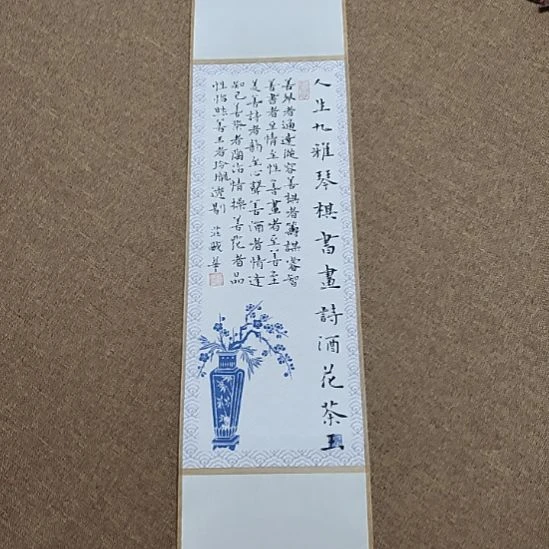 人生九雅琴棋書畫詩酒花茶玉
善琴者通達從容善棋者籌謀睿智
善書者至情至性善畫者至善至
美善詩者韵至心聲善酒者情逢
知己善茶者陶冶情操善花者品
性怡然善玉者玲瓏透剔